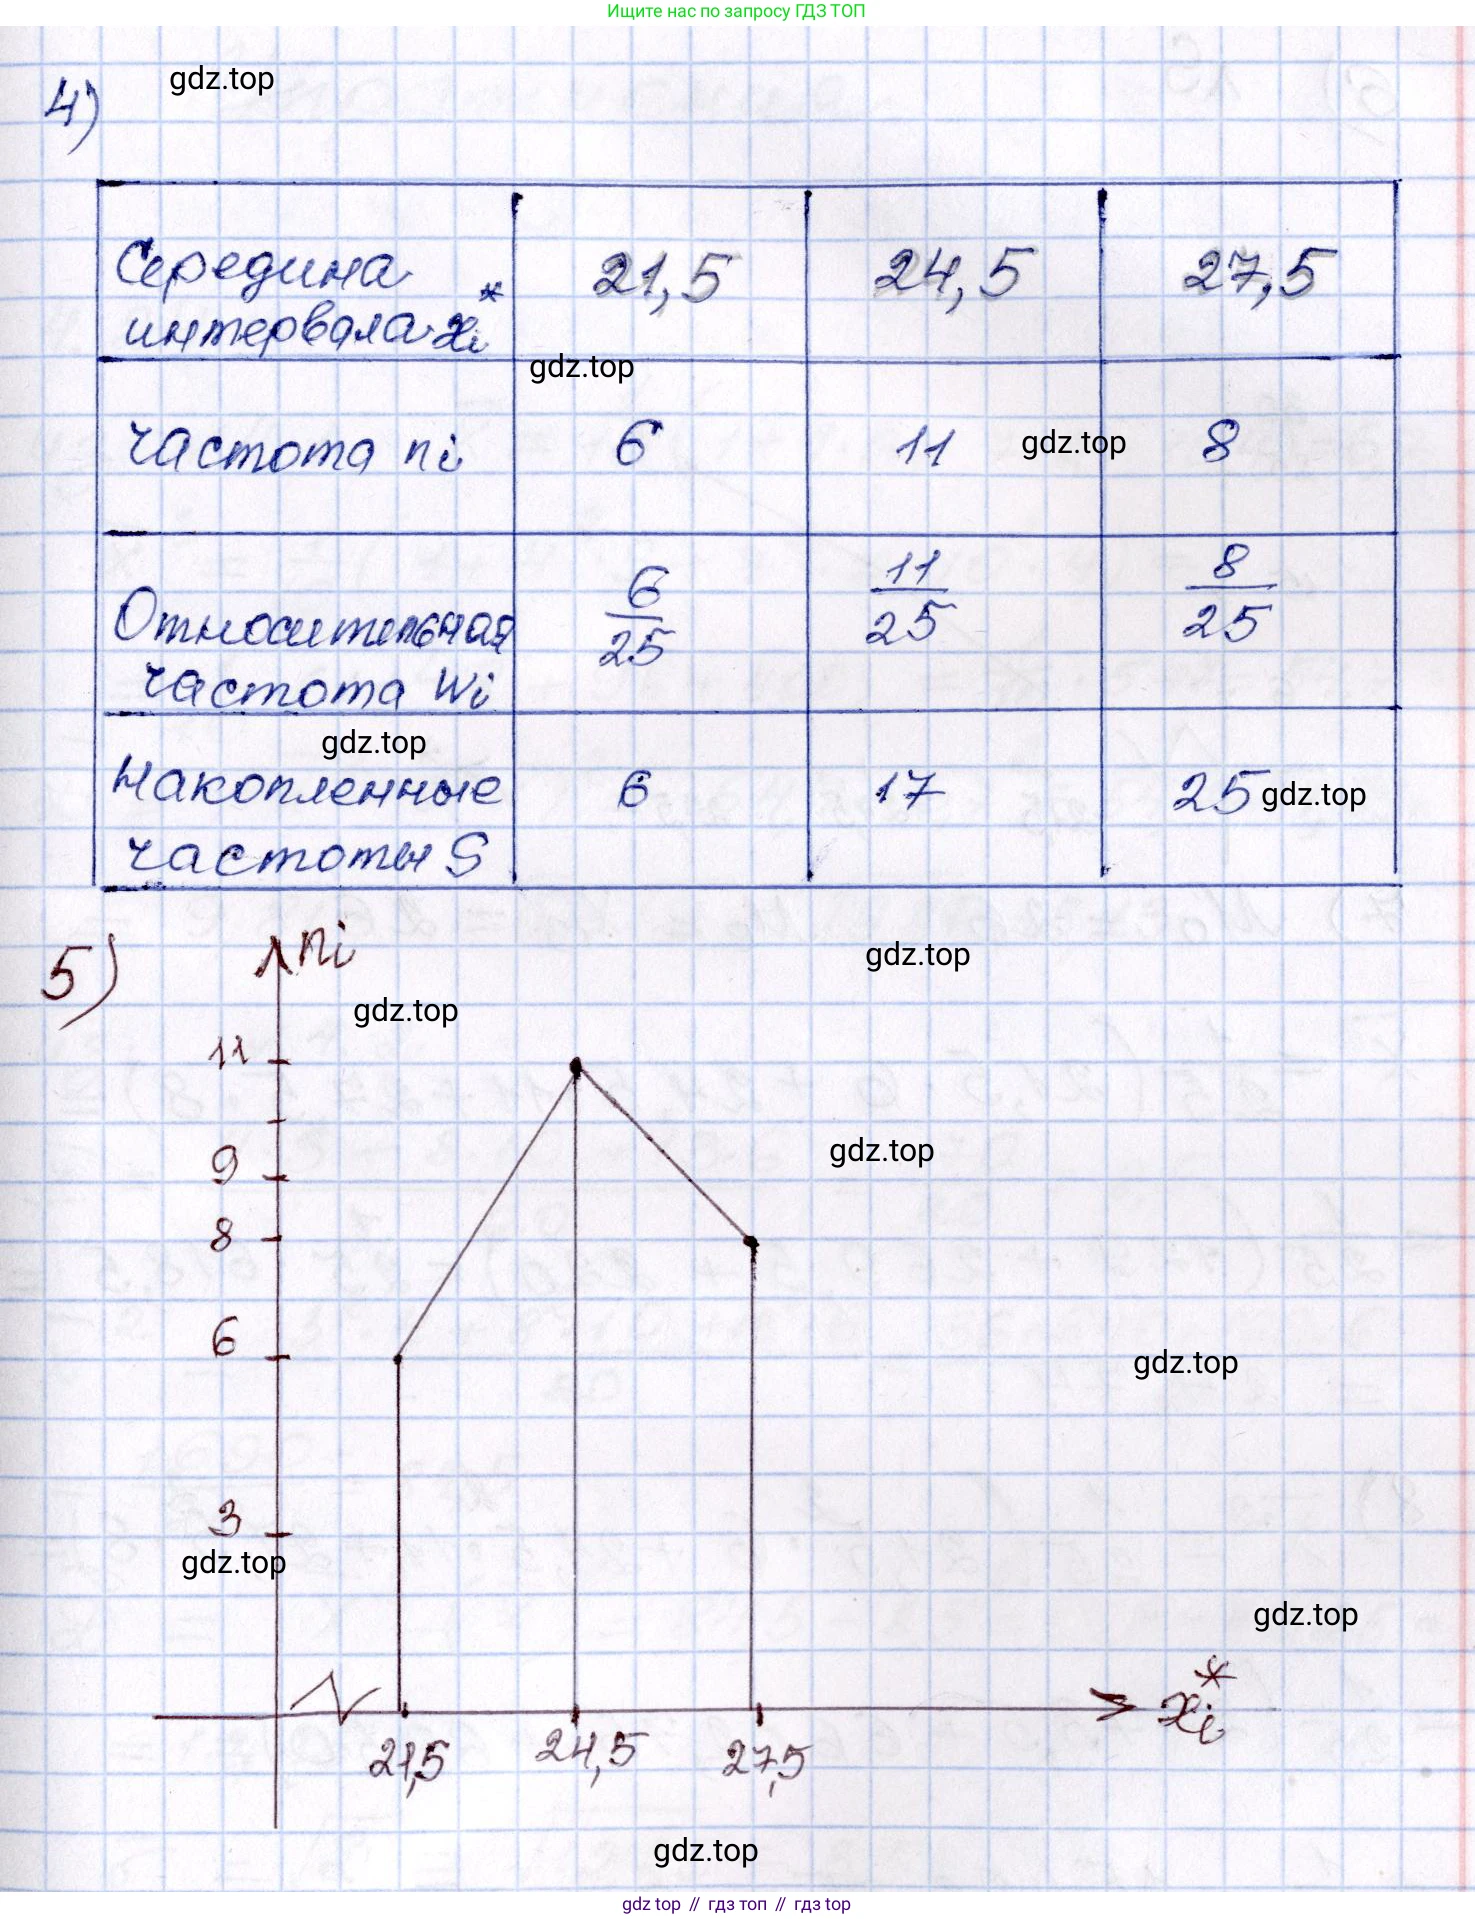 Ищите нас по запросу ГДЗ ТОП
gdz.top
4)
Середина интервала xi* 21,5 24,5 27,5
gdz.top
частота ni 6 11 gdz.top 8
Относительная частота Wi 6/25 11/25 8/25
gdz.top
Накопленные частоты S 6 17 25 gdz.top
5) ni
gdz.top
gdz.top
11
gdz.top
9
8
6
gdz.top
3
gdz.top
gdz.top
xi*
21,5 24,5 27,5
gdz.top
gdz top // гдз топ // гдз top